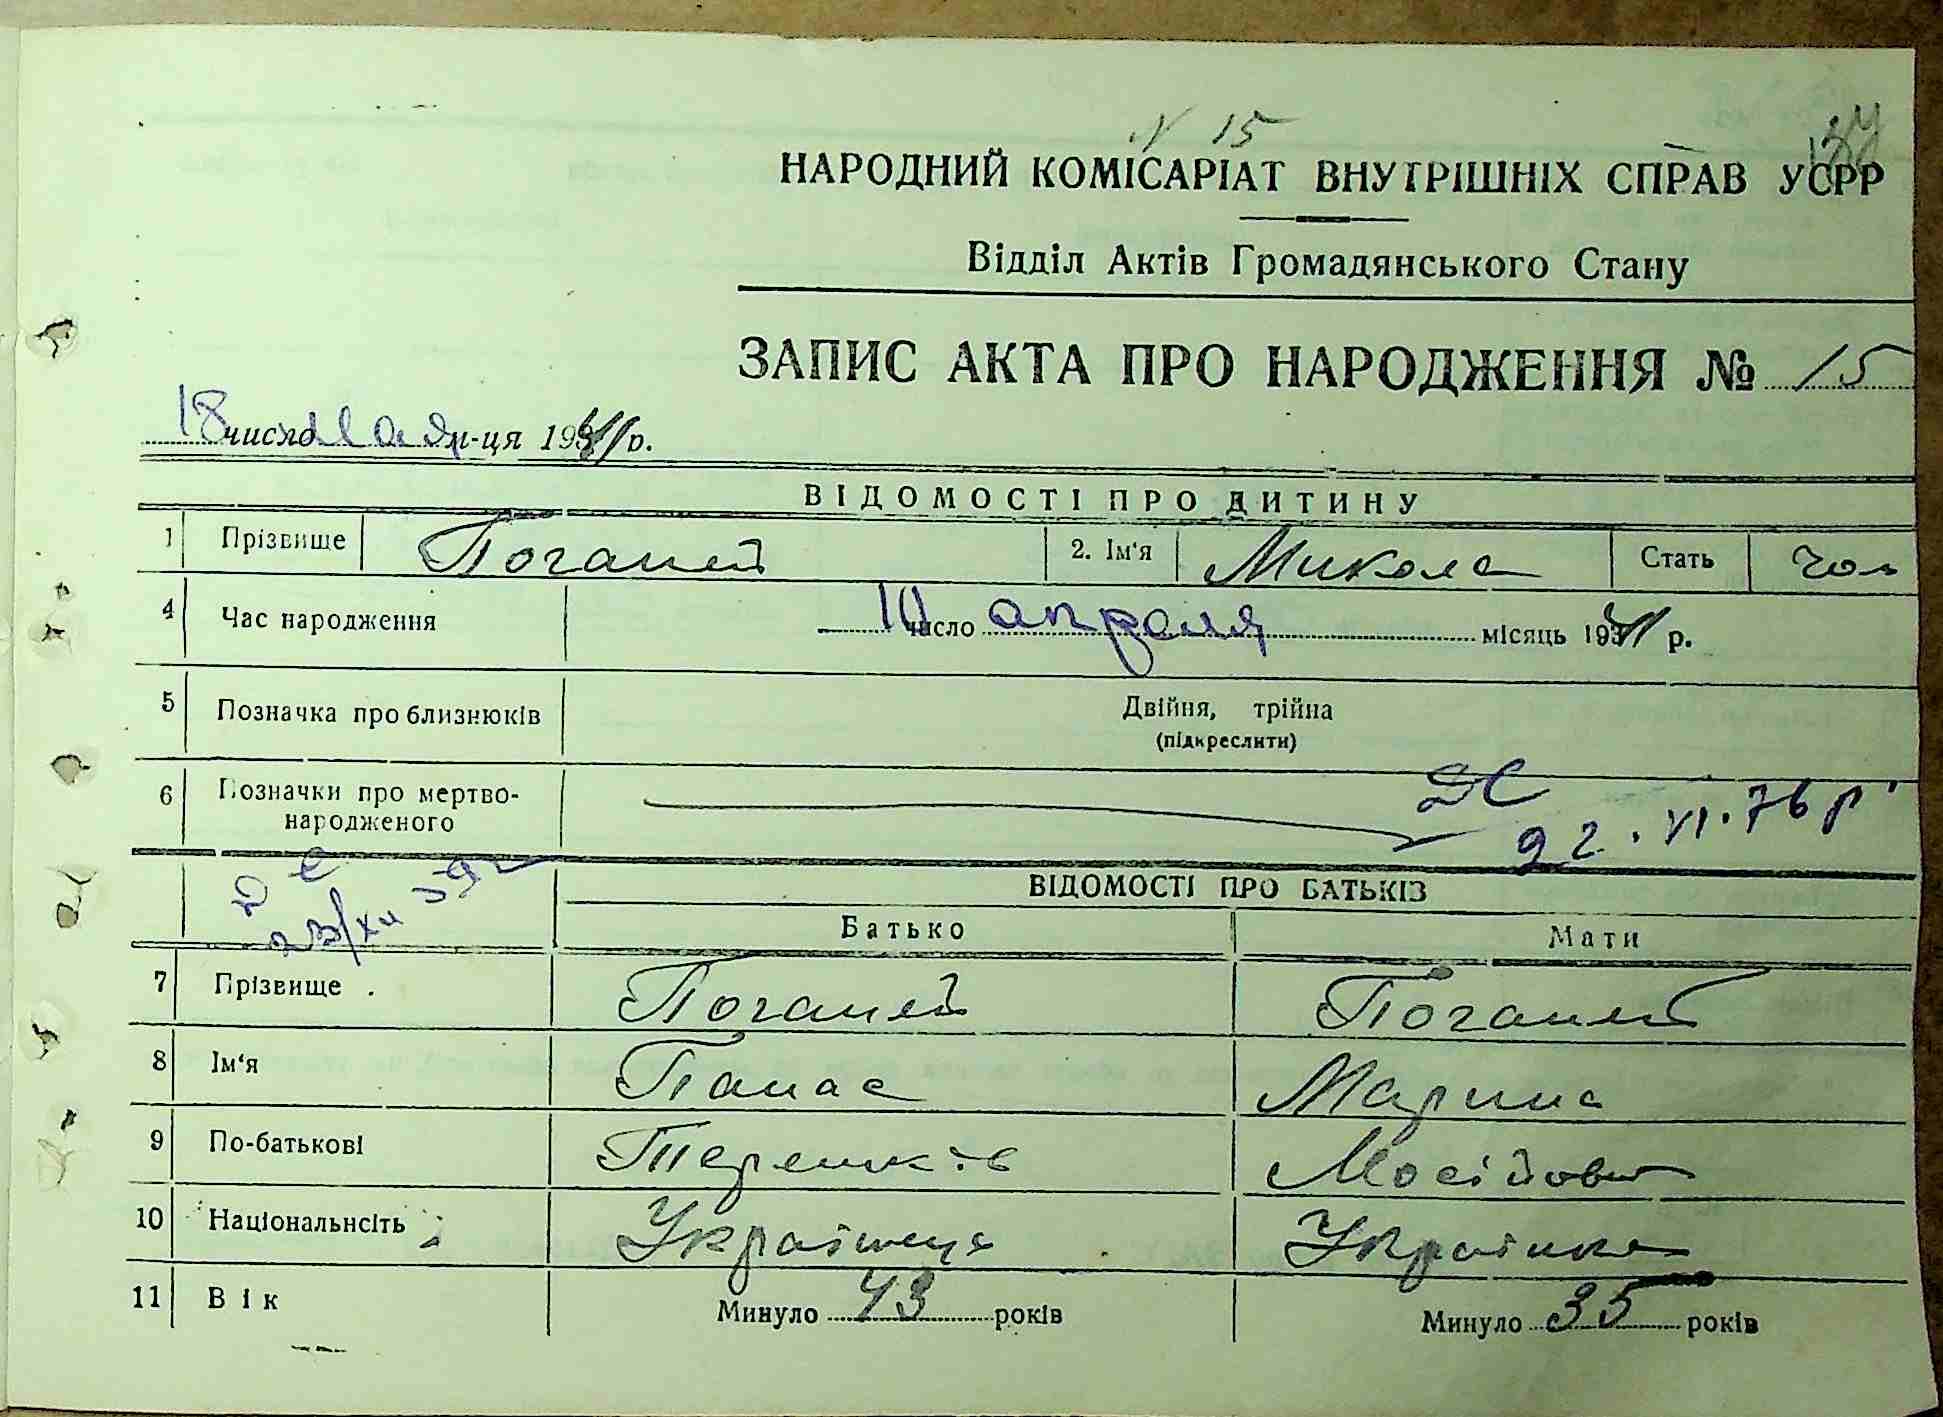 N 15
НАРОДНИЙ КОМІСАРІАТ ВНУТРІШНІХ СПРАВ УСРР
Відділ Актів Громадянського Стану
ЗАПИС АКТА ПРО НАРОДЖЕННЯ № 15
18 число мая м-ця 1941 р.
ВІДОМОСТІ ПРО ДИТИНУ
1 Прізвище Поганей 2. Ім'я Микола Стать чол
4 Час народження 10 число апреля місяць 1941 р.
5 Позначка про близнюків Двійня, трійна
(підкреслити)
6 Позначки про мертво-
народженого
22.VI.76 р
ВІДОМОСТІ ПРО БАТЬКІВ
Батько Мати
7 Прізвище Поганей Поганей
8 Ім'я Панас Марина
9 По-батькові Терешків Мосійовна
10 Національнсіть Українець Українка
11 Вік Минуло 43 років Минуло 35 років